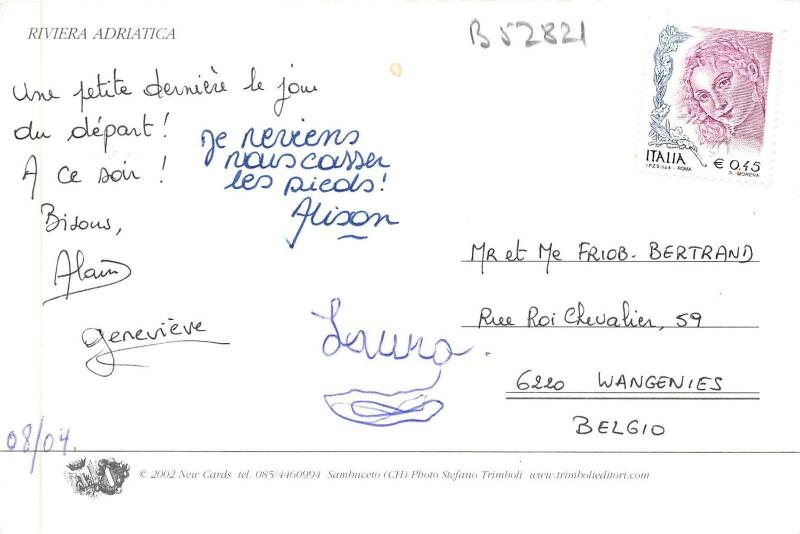 RIVIERA ADRIATICA
B52821
Une petite dernière le jour
du départ !
A ce soir !
Bisous,
Alain
Geneviève
Je reviens
vous casser
les pieds !
Alison
Laura
08/04.
ITALIA
€ 0,45
I.P.Z.S. S.p.A. - ROMA
S. MORENA
MR et Me FRIOB-BERTRAND
Rue Roi Chevalier, 59
6220 WANGENIES
BELGIO
© 2002 New Cards tel. 085/4460994 Sambuceto (CH) Photo Stefano Trimboli www.trimbolieditori.com